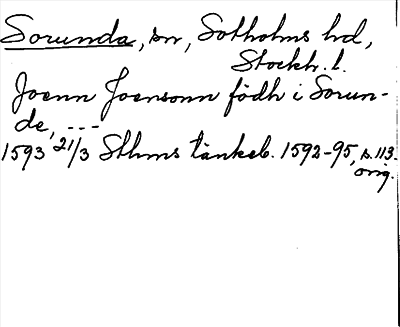 Sorunda, sn, Sotholms hd,
Stockh. l.
Joenn Joensonn född i Sorun-
de, ---
1593 21/3 Sthms tänkeb. 1592-95, s. 113.
orig.